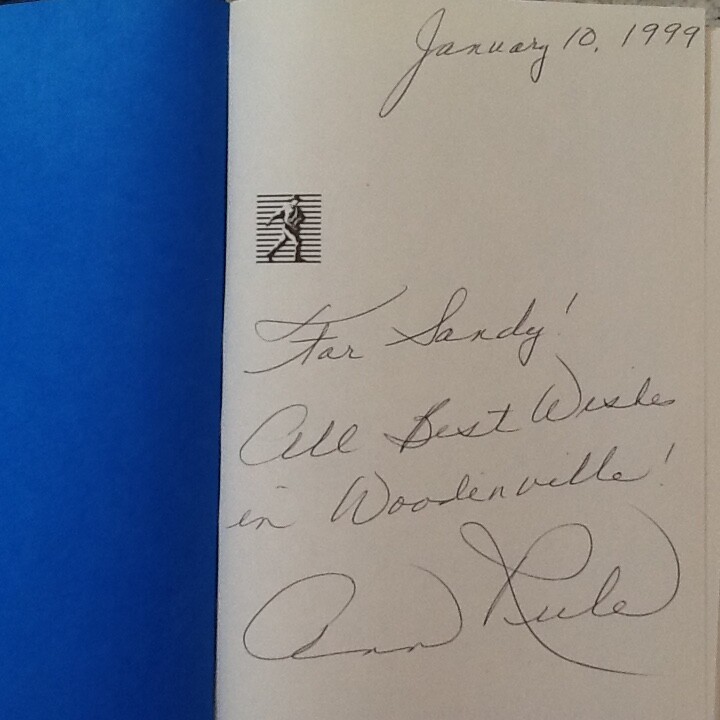 January 10, 1999
For Sandy!
All Best Wishes
in Woodenville!
Ann Rule